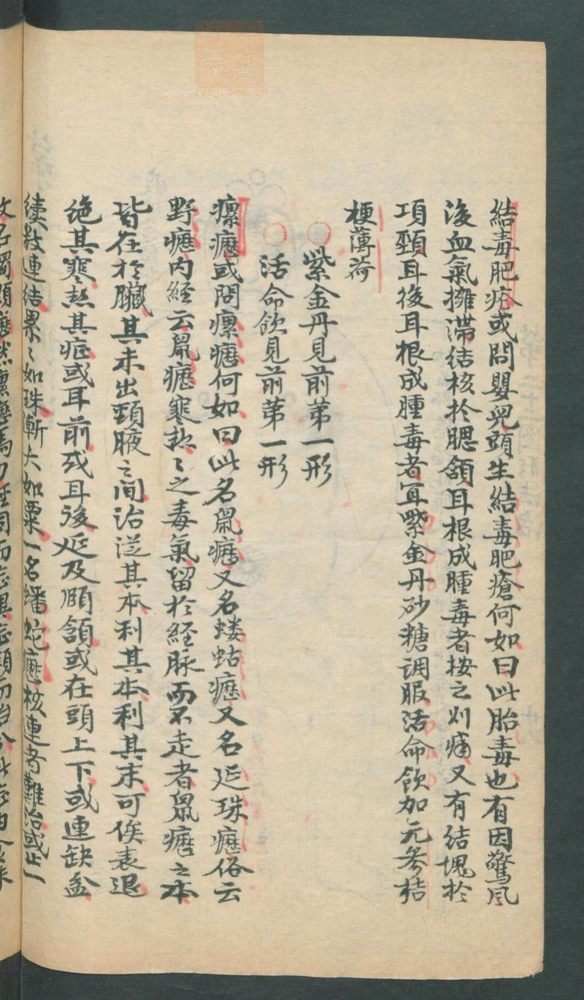 結毒肥疕或問嬰兒頭生結毒肥瘡何如曰此胎毒也有因驚風
後血氣擁滯結核於腮頷耳根成腫毒者按之刈痛又有結塊於
項頸耳後耳根成腫毒者宜紫金丹砂糖調服活命飲加元参桔
梗薄荷
紫金丹見前苐一形
活命飲見前苐一形
瘰癧或問瘰癧何如曰此名鼠癧又名螻蛄癧又名延珠癧俗云
野癧内経云鼠癧寒熱之毒氣留於経脉而不走者鼠癧之本
皆在於臟其末出頸腋之間治從其本利其末可俟表退
絶其寒熱其症或耳前或耳後延及頤頷或在頭上下或連缺盆
續数連結累〻如珠漸大如粟一名蟠蛇癧核連者難治或止一